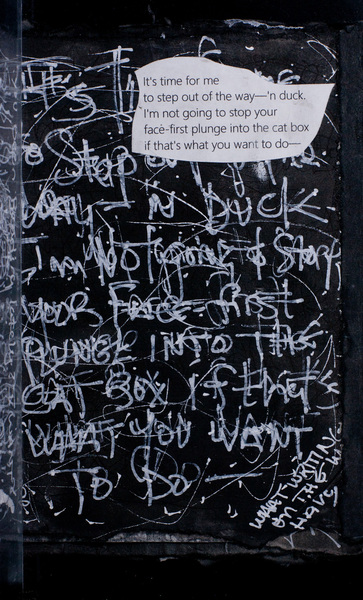 It's time for me
to step out of the way—'n duck.
I'm not going to stop your
face-first plunge into the cat box
if that's what you want to do—
Stop
WAY — 'N DUCK
I'm NOT going to Stop
YOUR FACE-first
PLUNGE INTO THE
CAT BOX if that's
WHAT YOU WANT
TO DO —
WHAT WRITING
ON THIS IN